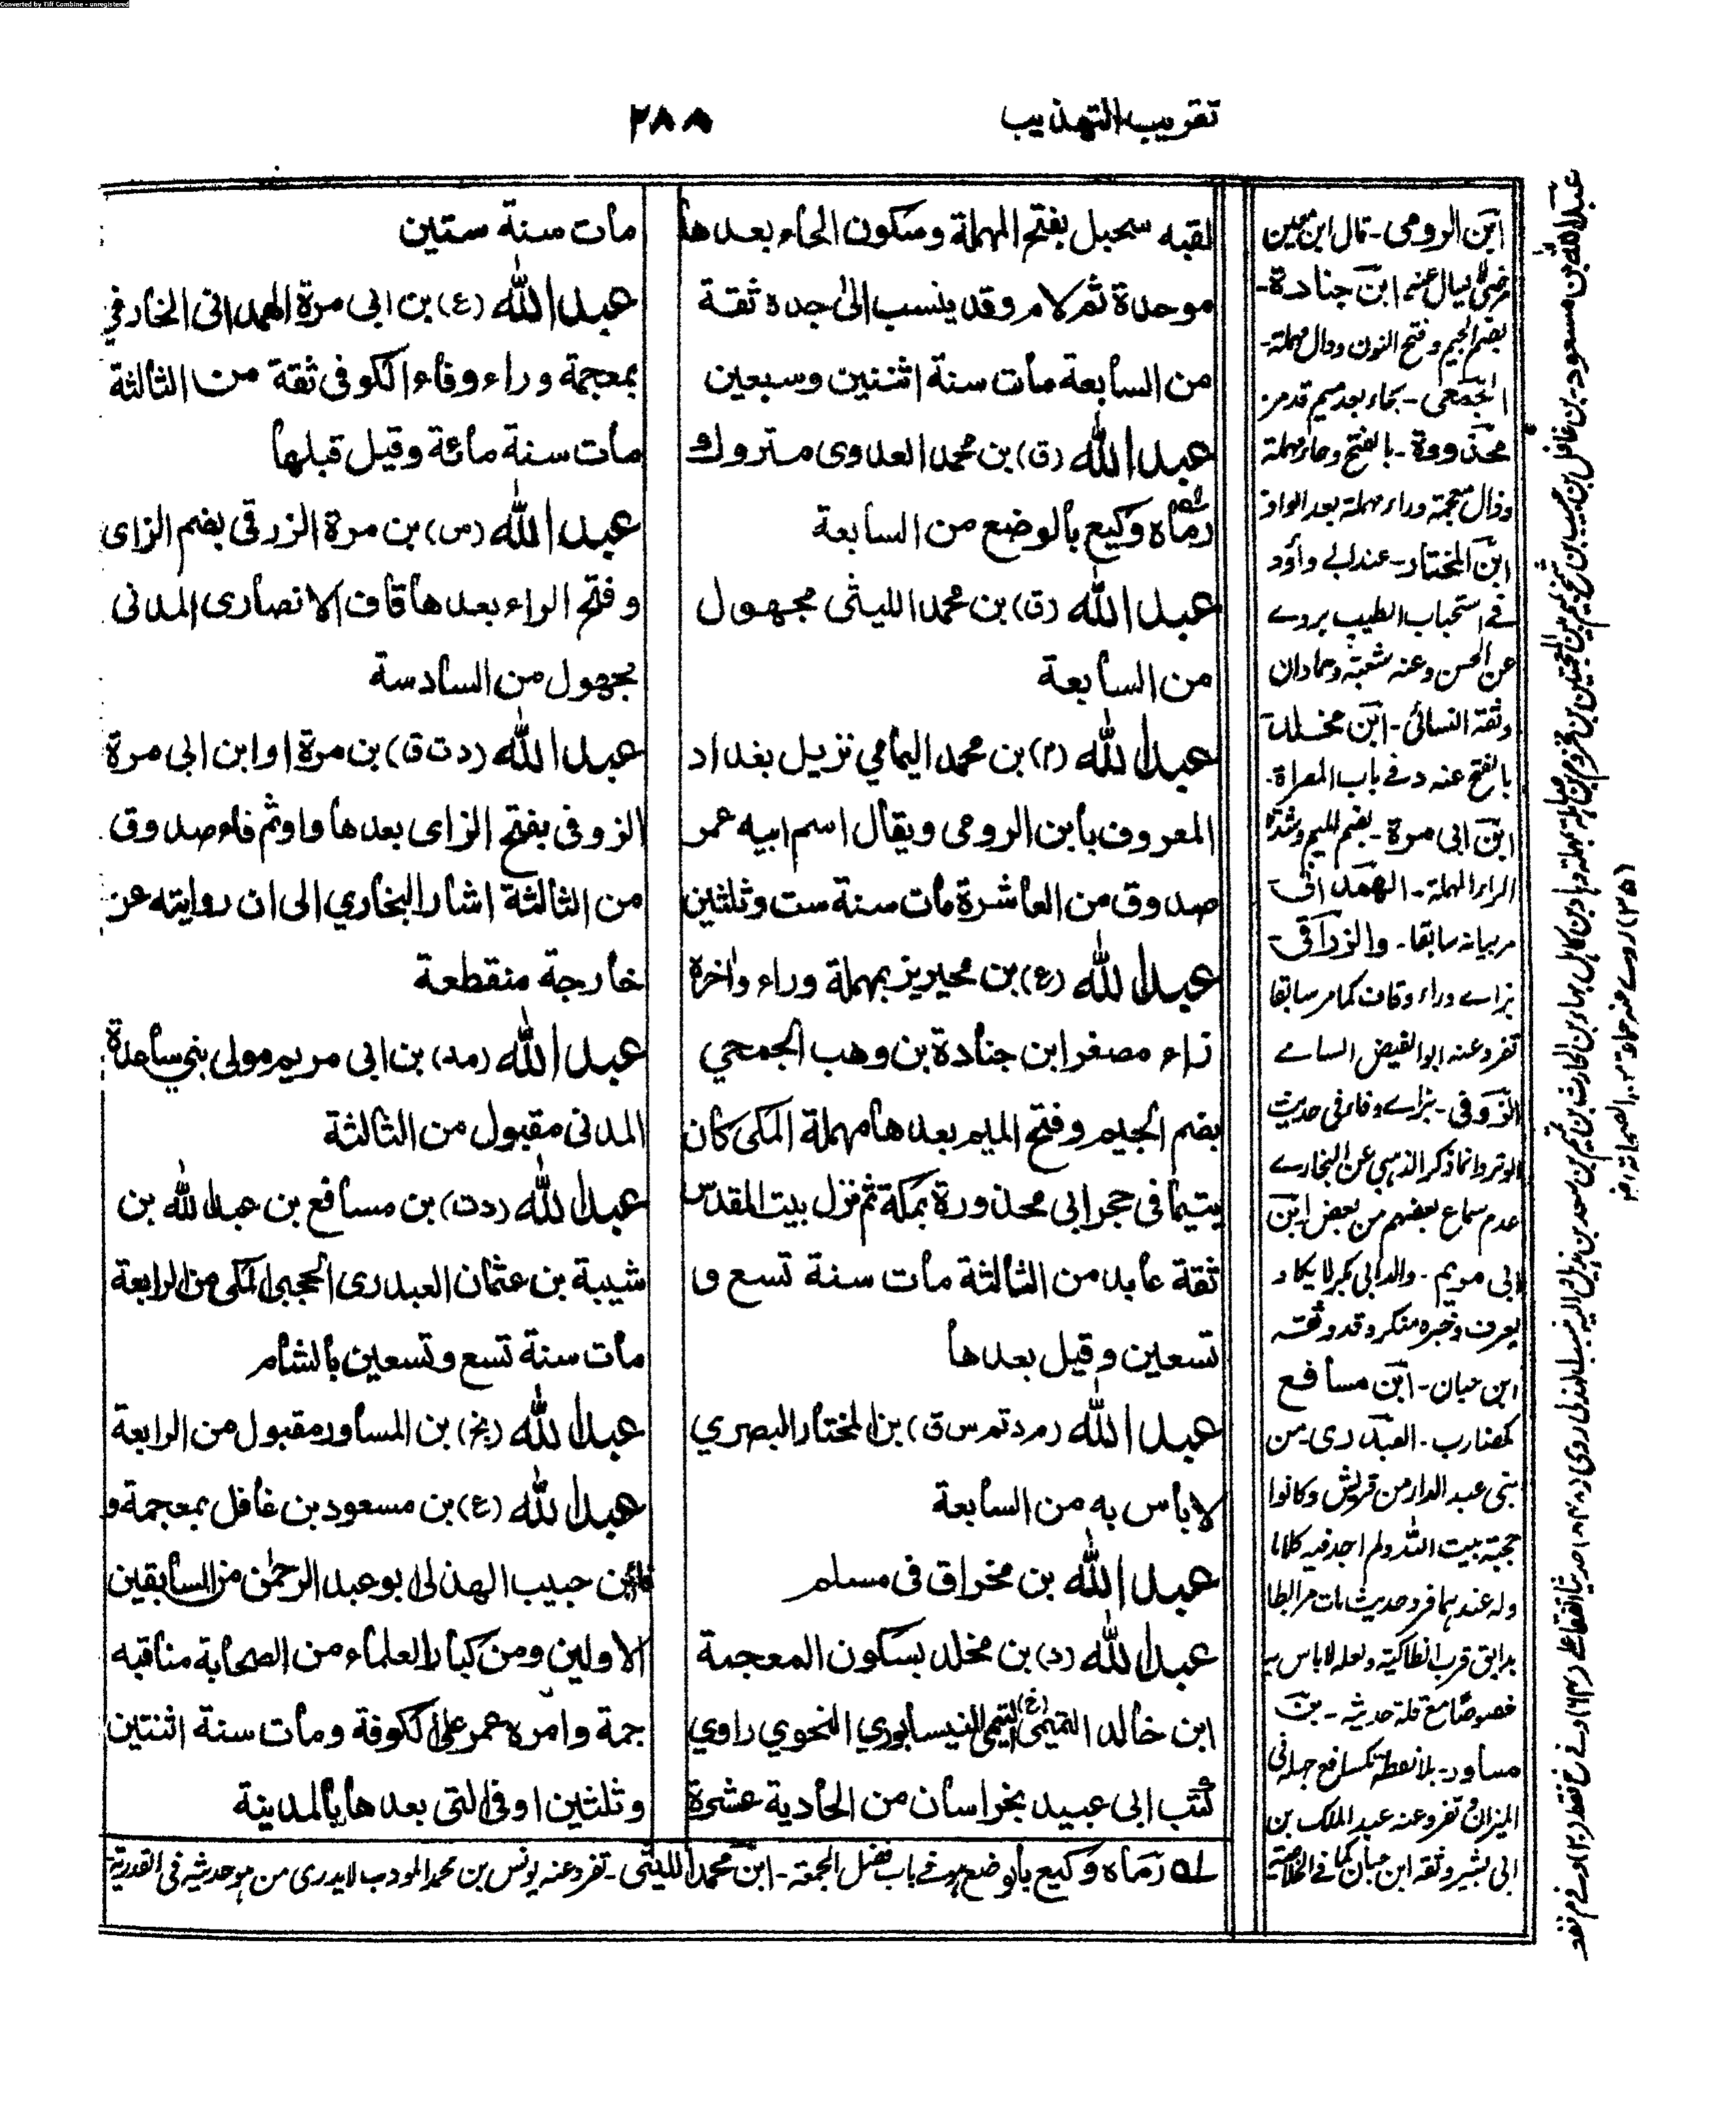 Converted by Tiff Combine - unregistered
تقريب التهذيب
٢٨٨
لقبه سحبل بفتح المهملة وسكون الحاء بعدها
موحدة ثم لام وقد ينسب الى جده ثقة
من السابعة مات سنة اثنين وسبعين
عبد الله (ق) بن محمد العدوى متروك
رماه وكيع بالوضع من السابعة
عبد الله (ق) بن محمد الليثى مجهول
من السابعة
عبد الله (م) بن محمد اليمامي نزيل بغداد
المعروف بابن الرومى ويقال اسم ابيه عمر
صدوق من العاشرة مات سنة ست وثلثين
عبد الله (ع) بن محيريز بمهملة وراء واخره
زاء مصغر ابن جنادة بن وهب الجمحي
بضم الجيم وفتح الميم بعدها مهملة المكى كان
يتيما فى حجر ابى محذورة بمكة ثم نزل بيت المقدس
ثقة عابد من الثالثة مات سنة تسع و
تسعين وقيل بعدها
عبد الله (م د تم س ق) بن المختار البصري
لا باس به من السابعة
عبد الله بن مخراق فى مسلم
عبد الله (د) بن مخلد بسكون المعجمة
ابن خالد التميمى (خ) التيمى النيسابوري النحوي راوي
كتب ابى عبيد بخراسان من الحادية عشرة
مات سنة ستين
عبد الله (ع) بن ابى مرة الهمدانى الخارفي
بمعجمة وراء وفاء الكوفى ثقة من الثالثة
مات سنة مائة وقيل قبلها
عبد الله (س) بن مرة الزرقى بضم الزاى
وفتح الراء بعدها قاف الانصارى المدنى
مجهول من السادسة
عبد الله (د ت ق) بن مرة او ابن ابى مرة
الزوفى بفتح الزاى بعدها واو ثم فاء صدوق
من الثالثة اشار البخاري الى ان روايته عن
خارجة منقطعة
عبد الله (مد) بن ابى مريم مولى بني ساعدة
المدنى مقبول من الثالثة
عبد الله (د ت) بن مسافع بن عبد الله بن
شيبة بن عثمان العبدرى الحجبى المكى من الرابعة
مات سنة تسع وتسعين بالشام
عبد الله (بخ) بن المساور مقبول من الرابعة
عبد الله (ع) بن مسعود بن غافل بمعجمة و
فاء بن حبيب الهذلى ابو عبد الرحمن من السابقين
الاولين ومن كبار العلماء من الصحابة مناقبه
جمة وامره عمر على الكوفة ومات سنة اثنتين
وثلثين او فى التى بعدها بالمدينة
له رماه وكيع بالوضع وله فى باب فضل الجمعة - ابن محمد الليثى - تفرد عنه يونس بن محمد المودب لا يدرى من هو حديثه فى القدرية
ابن الرومى - قال ابن معين
ابن جنادة -
بضم الجيم وفتح النون ودال مهملة -
الجمحى - بحاء بعد ميم قد مر
محذورة - بالفتح وحاء مهملة
وذال معجمة وراء مهملة بعد الواو
ابن المختار - عند ابى داود
فى استحباب الطيب يروے
عن الحسن وعنه شعبة وحمادان
وثقه النسائى - ابن مخلد
بالفتح عنه د فى باب المعراة
ابن ابى مرة - بضم الميم وشدة
الراء المهملة - الهمدانى
مر بيانه سابقا - والزرقى
بزاے وراء وقاف كما مر سابقا
تفرد عنه ابو الفيض الشامے
الزوفى - بزاے وفاء فى حديث
الوتر وانما ذكر الذهبى عن البخارے
عدم سماع بعضهم من بعض ابن
ابى مريم - والد ابى بكر لا يكاد
يعرف وخبره منكر وقد وثقه
ابن حبان - ابن مسافع
كمضارب - العبدرى - من
بنى عبد الدار من قريش وكانوا
حجبة بيت الله ولم اجد فيه كلاما
وله عندهما فرد حديث مات مرابطا
بدابق قرب انطاكية ولعله لا باس به
خصوصا مع قلة حديثه - بن
مساور - بلا نقطة
الميزان تفرد عنه عبد الملك بن
ابى بشير وثقه ابن حبان كما فى الخلاصة
عبد الله بن مسعود - بن غافل بن حبيب